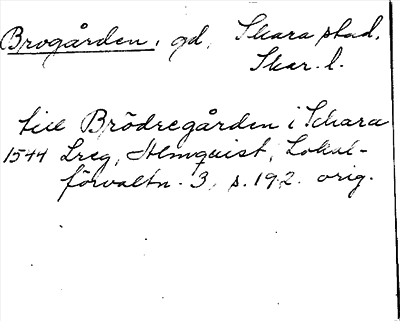 Brogården, gd, Skara stad.
Skar. l.
till Brödregården i Schara
1544 Lreg, Almquist, Lokal-
förvaltn. 3, s. 192. orig.